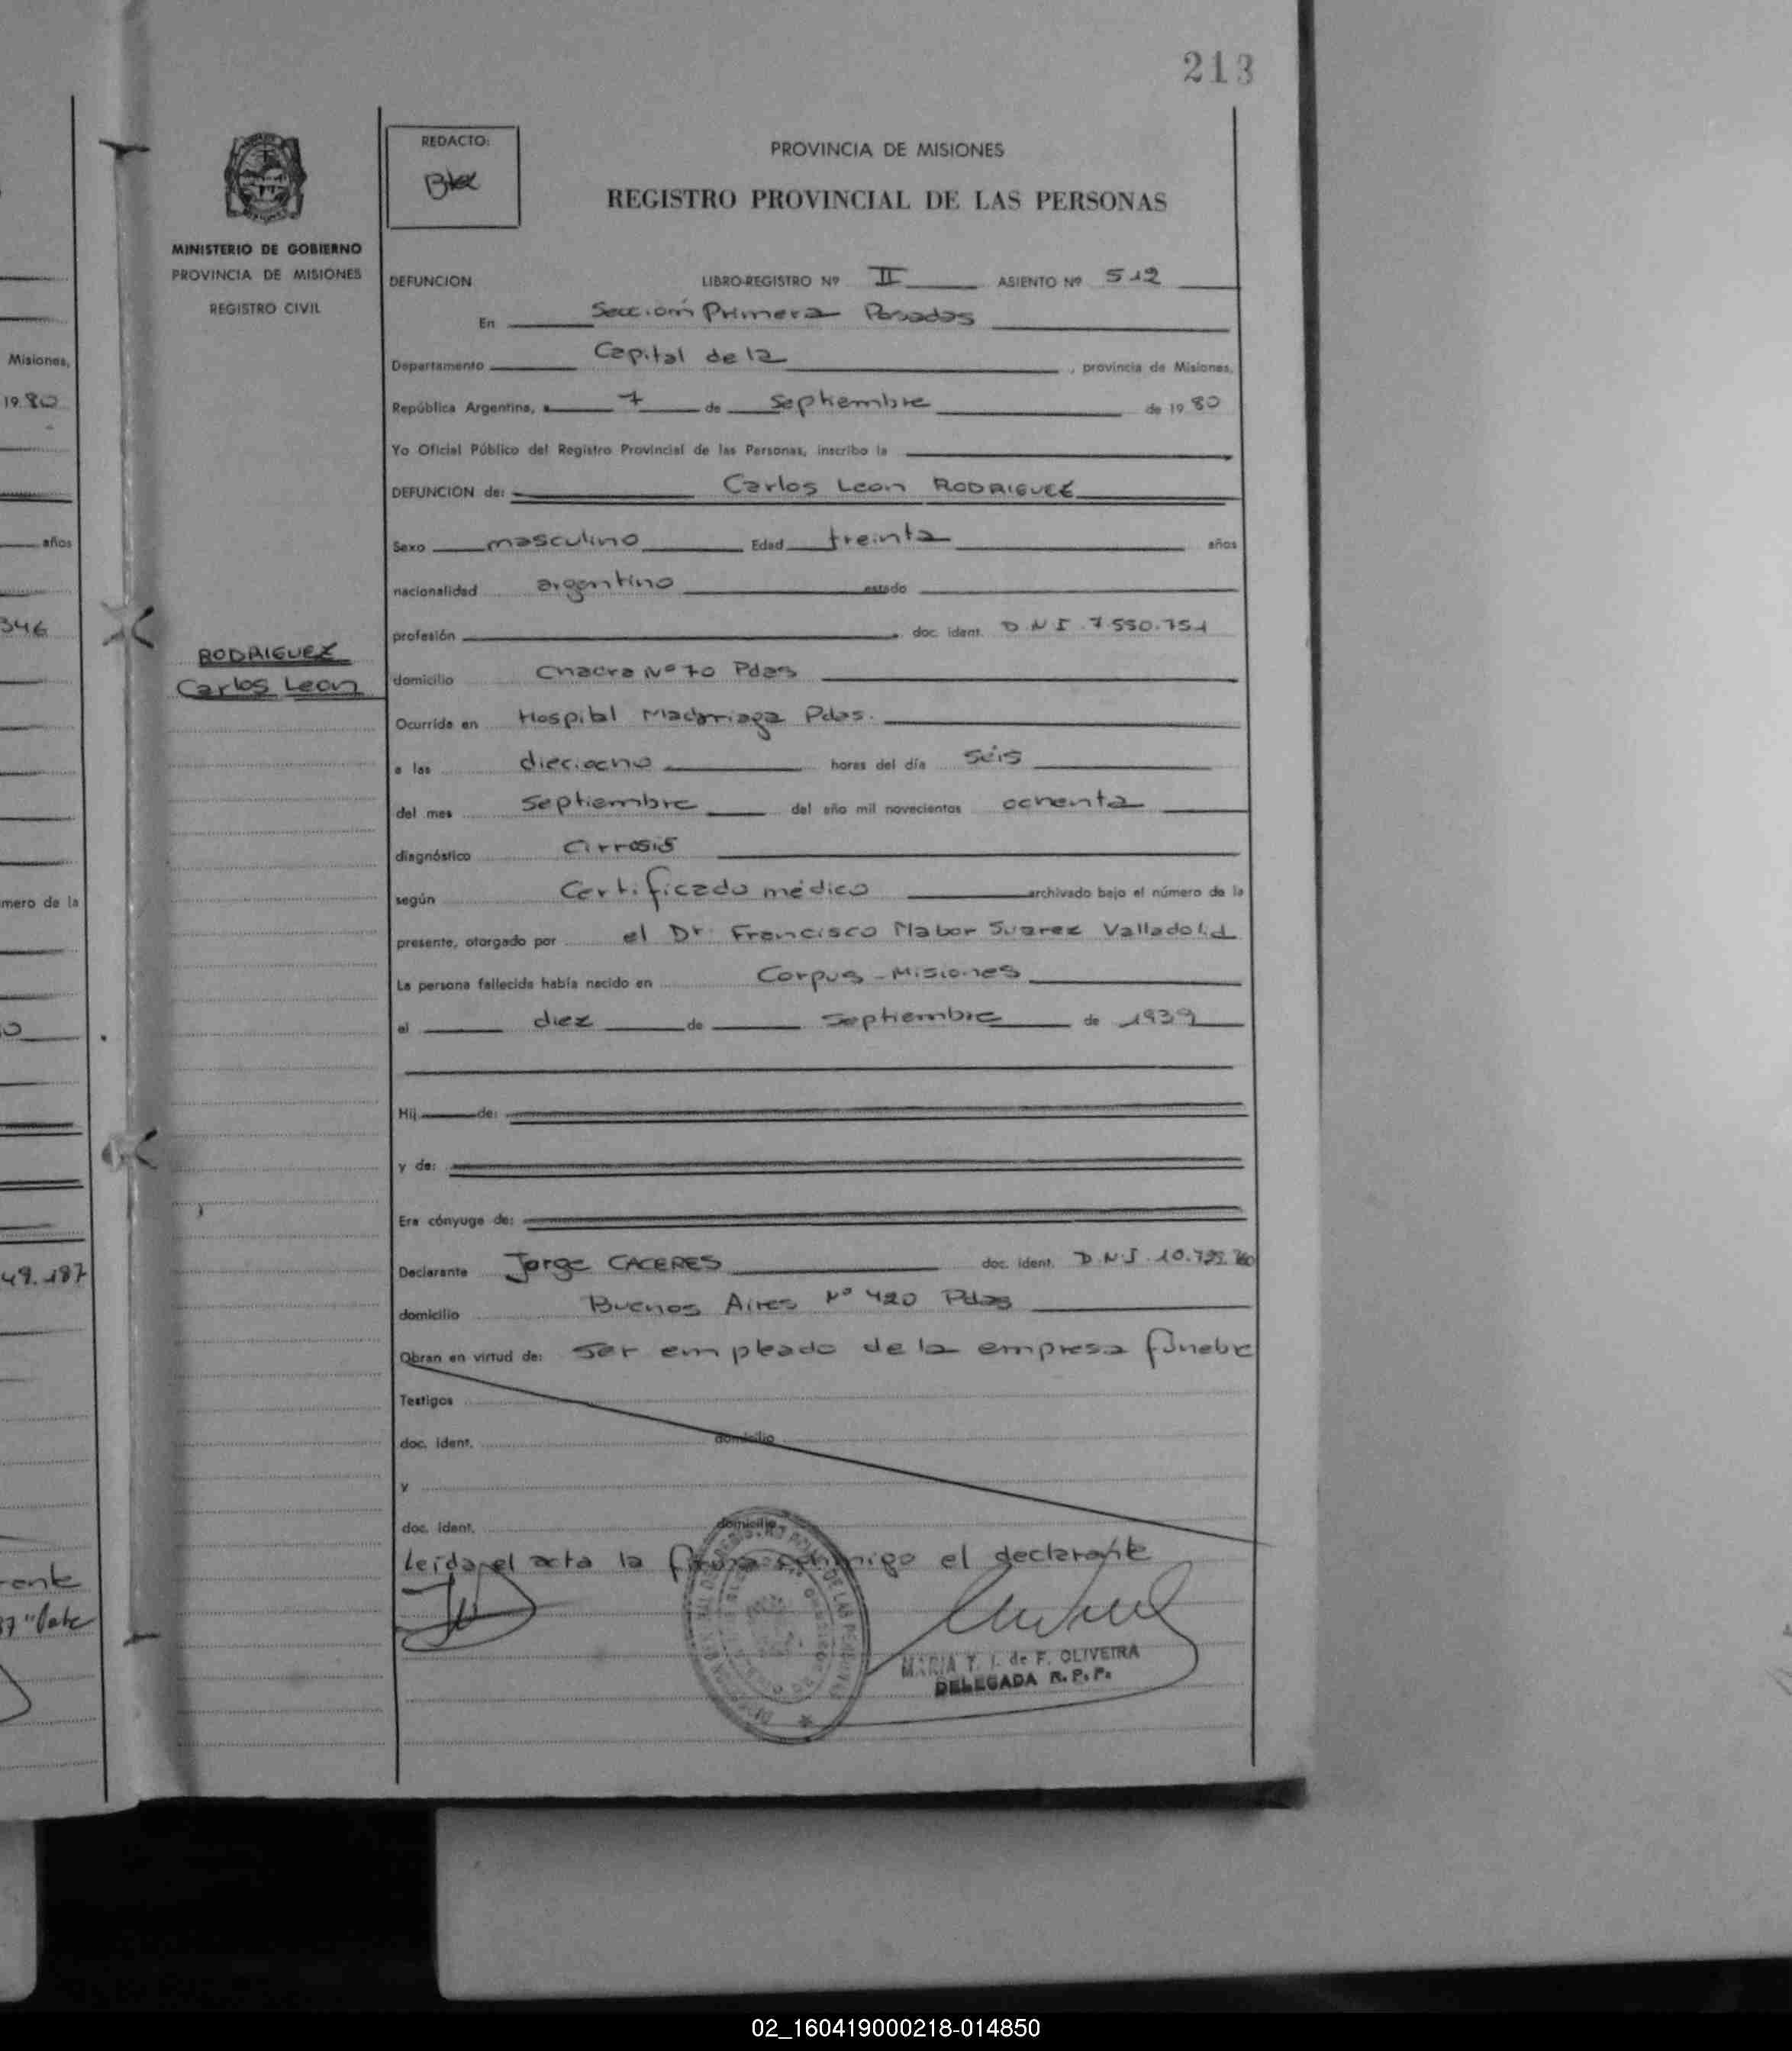 213
REDACTO:
PROVINCIA DE MISIONES
REGISTRO PROVINCIAL DE LAS PERSONAS
MINISTERIO DE GOBIERNO
PROVINCIA DE MISIONES
REGISTRO CIVIL
DEFUNCION LIBRO-REGISTRO Nº II ASIENTO Nº 512
En Sección Primera Posadas
Departamento Capital de la , provincia de Misiones,
República Argentina, a 7 de Septiembre de 1980
Yo Oficial Público del Registro Provincial de las Personas, inscribo la
DEFUNCION de: Carlos Leon RODRIGUEZ
Sexo masculino Edad treinta años
nacionalidad argentino estado
profesión doc. ident. D N I . 7.550.751
RODRIGUEZ
Carlos Leon
domicilio Chacra Nº 70 Pdas
Ocurrida en Hospital Madariaga Pdas.
a las dieciocho horas del día seis
del mes Septiembre del año mil novecientos ochenta
diagnóstico Cirrosis
según Certificado médico archivado bajo el número de la
presente, otorgado por el Dr. Francisco Nabor Suarez Valladolid
La persona fallecida había nacido en Corpus - Misiones
el diez de Septiembre de 1939
Hij de:
y de:
Era cónyuge de:
Declarante Jorge CACERES doc. ident. D.N.I. 10.
domicilio Buenos Aires Nº 420 Pdas
Obran en virtud de: ser empleado de la empresa fúnebre
Testigos
doc. ident. domicilio
y
doc. ident. domicilio
Leida el acta la firma conmigo el declarante
MARIA T. I. de F. OLIVEIRA
DELEGADA R. P. P.
Misiones,
1980
años
346
mero de la
49.187
02_160419000218-014850